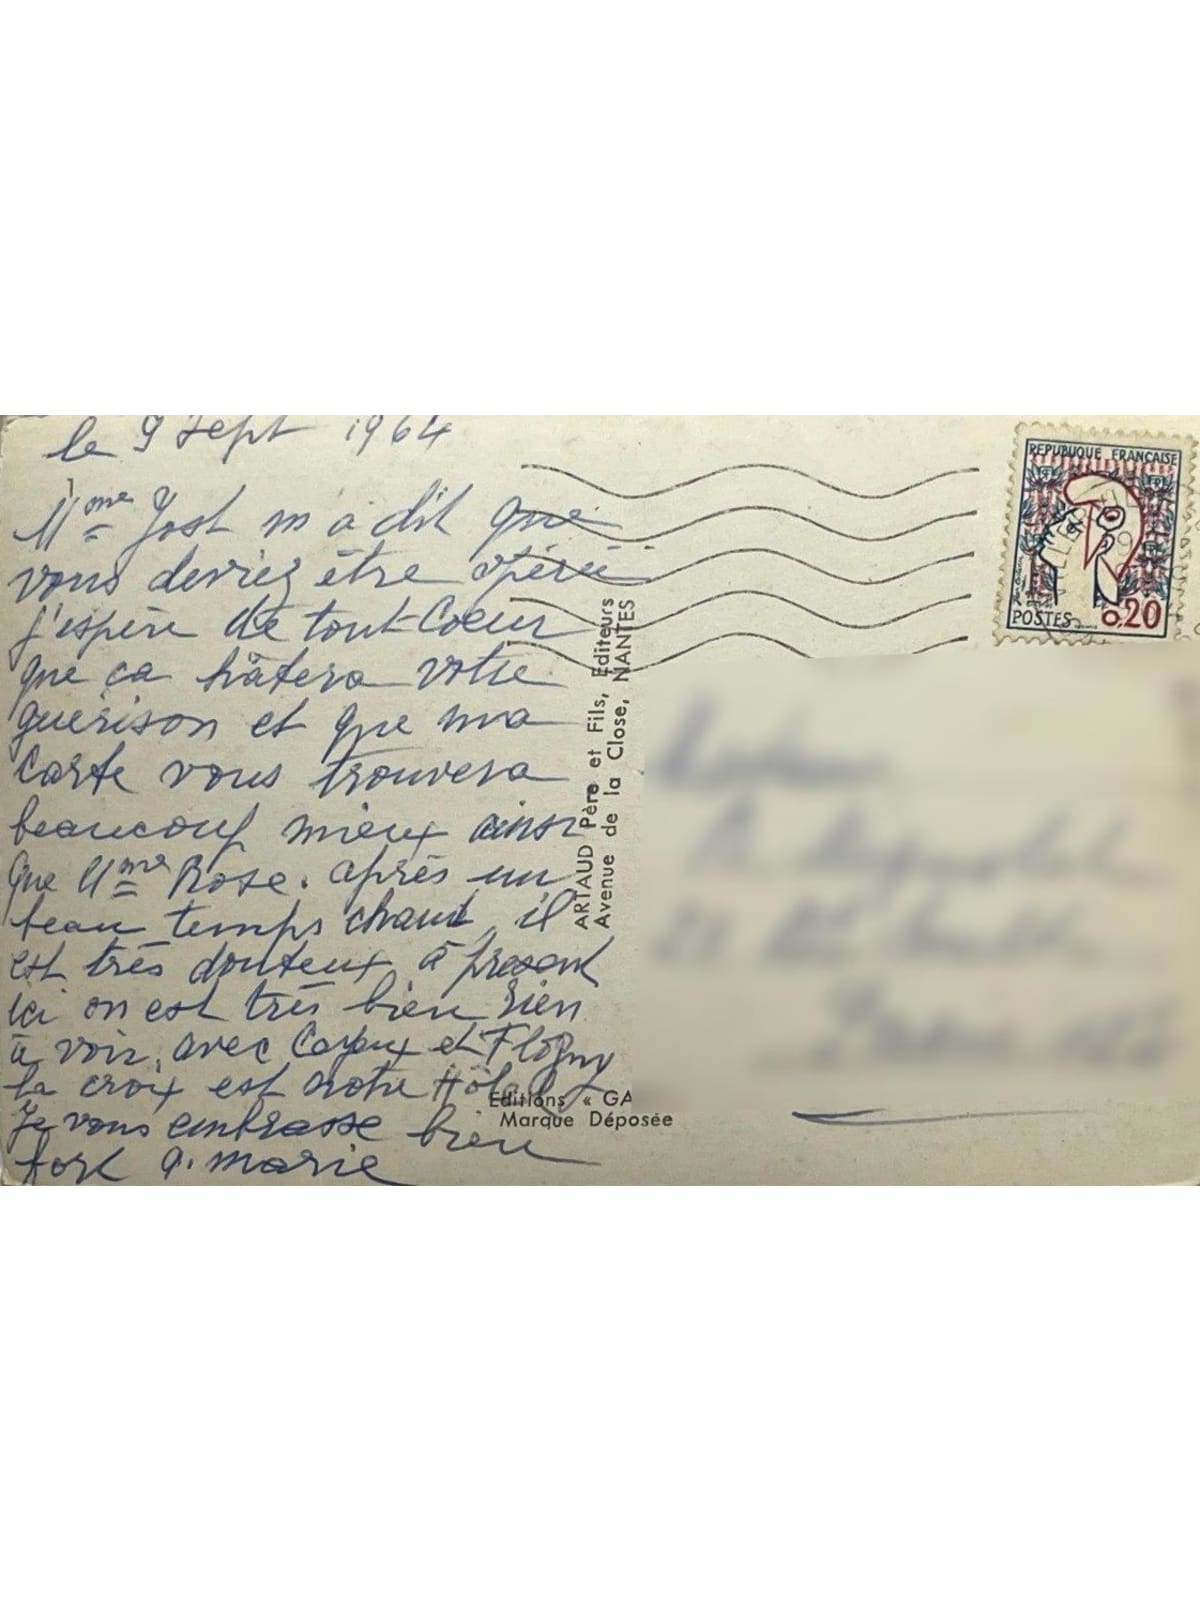 le 9 Sept 1964
Mme Jost m'a dit que
vous devriez être opérée
j'espère de tout Coeur
que ça hâtera votre
guérison et que ma
Carte vous trouvera
beaucoup mieux ainsi
que Mme Rose. après un
beau temps chaud, il
est très douteux à present
ici on est très bien rien
à voir, avec et Flogny
la croix est notre Hôtel
Je vous embrasse bien
fort a. marie
ARTAUD Père et Fils, Editeurs
Avenue de la Close, NANTES
Editions « GA
Marque Déposée
REPUBLIQUE FRANÇAISE
POSTES 0,20